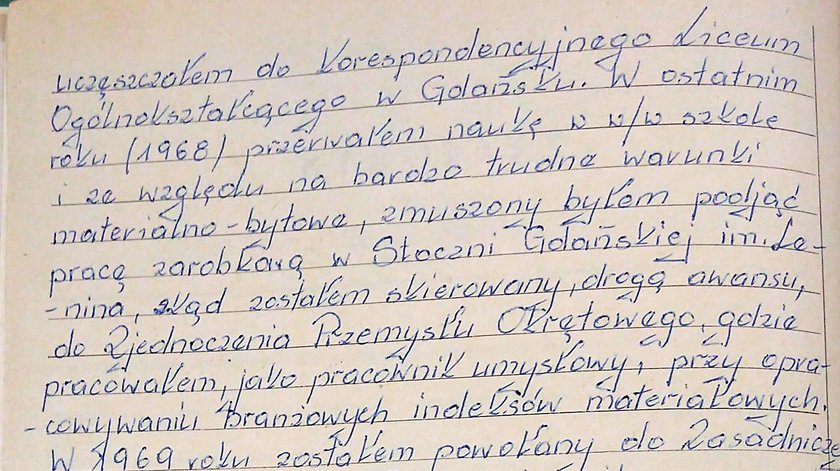 uczęszczałem do Korespondencyjnego Liceum
Ogólnokształcącego w Gdańsku. W ostatnim
roku (1968) przerwałem naukę w w/w szkole
i ze względu na bardzo trudne warunki
materialno-bytowe, zmuszony byłem podjąć
pracę zarobkową w Stoczni Gdańskiej im. Le-
-nina, skąd zostałem skierowany, drogą awansu,
do Zjednoczenia Przemysłu Okrętowego, gdzie
pracowałem, jako pracownik umysłowy, przy opra-
-cowywaniu branżowych indeksów materiałowych.
W 1969 roku zostałem powołany do Zasadnicz